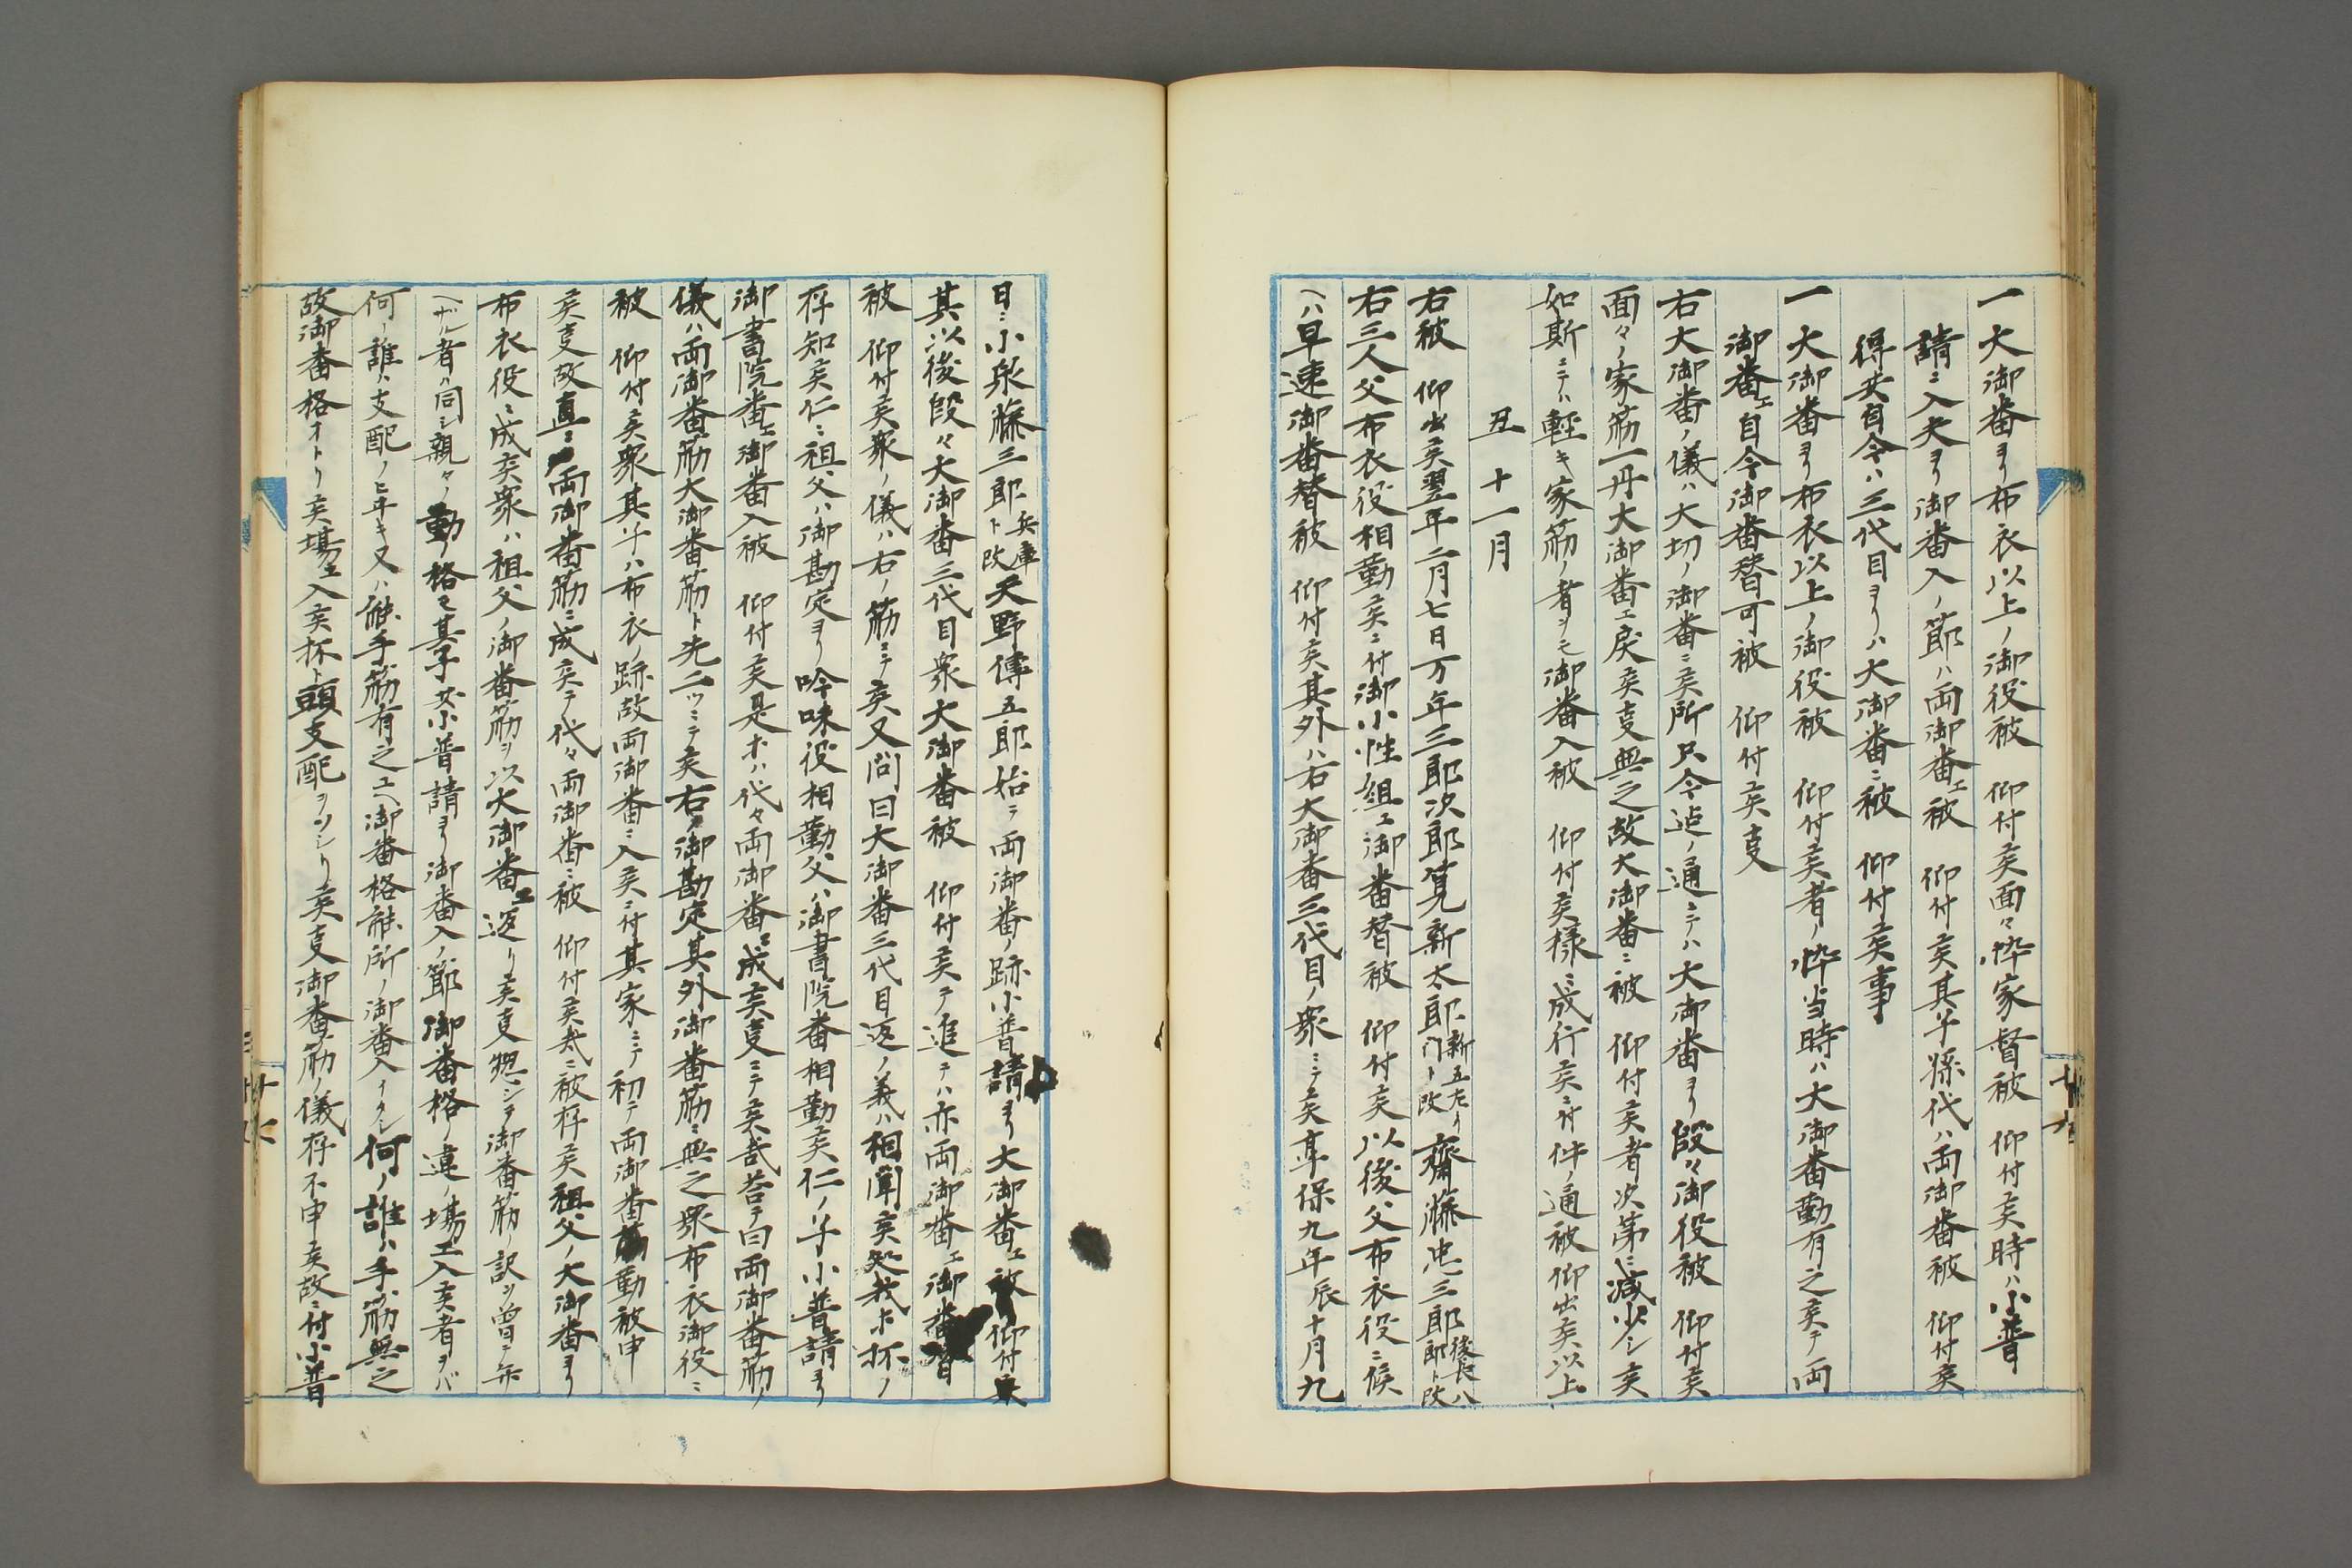 一大御番ヨリ布衣以上ノ御役被　仰付候面々忰家督被　仰付候時ハ小普
請ニ入夫ヨリ御番入ノ節ハ両御番エ被　仰付候其子孫代ハ両御番被　仰付候
得共自今ハ三代目ヨリハ大御番ニ被　仰付候事
一大御番ヨリ布衣以上ノ御役被　仰付候者ノ忰当時ハ大御番勤有之候テ両
御番エ自今御番替可被　仰付候事
右大御番ノ儀ハ大切ノ御番ニ候所只今迠ノ通ニテハ大御番ヨリ段々御役被　仰付候
面々ノ家筋一丹大御番エ戻候事無之故大御番ニ被　仰付候者次第ニ減少シ候
如斯ニテハ軽キ家筋ノ者ヲモ御番入被　仰付候様ニ成行候ニ付件ノ通被仰出候以上
丑　十一月
右被　仰出候翌年二月七日万年三郎次郎筧新太郎新五左リ門ト改齋藤忠三郎後長八郎ト改
右三人父布衣役相勤候ニ付御小性組エ御番替被　仰付候以後父布衣役ニ候
ヘハ早速御番替被　仰付候其外ハ右大御番三代目ノ衆ニテ候享保九年辰十月九
日ニ小泉藤三郎兵庫ト改天野傳五郎始テ両御番ノ跡小普請ヨリ大御番エ被　仰付候
其以後段々大御番三代目衆大御番被　仰付候テ追テハ亦両御番エ御番替
被　仰付候衆ノ儀ハ右ノ筋ニテ候又问曰大御番三代目返ノ義ハ相聞候処我ホ抔ノ
存知候仁ニ祖父ハ御勘定ヨリ吟味役相勤父ハ御書院番相勤候仁ノ子小普請ヨリ
御書院番エ御番入被　仰付候是ホハ代々両御番ニ成候事ニテ候哉答テ曰両御番筋ノ
儀ハ両御番筋大御番筋ト先二ツニテ候右ノ御勘定其外御番筋ニ無之衆布衣御役ニ
被　仰付候衆其子ハ布衣ノ跡故両御番ニ入候ニ付其家ニテ初テ両御番勤被申
候事故直ニ両御番筋ニ成候テ代々両御番ニ被　仰付候哉ニ被存候祖父ノ大御番ヨリ
布衣役ニ成候衆ハ祖父ノ御番筋ヲ以大御番エ返リ候事惣シテ御番筋ノ訳ヲ曽テ弁
ヘザル者ハ同シ親々ノ勤格モ其子共小普請ヨリ御番入ノ節御番格ノ違ノ場エ入候者ヲバ
何ノ誰ハ支配ノヒキ又ハ能手筋有之ユヘ御番格能所ノ御番入イタシ何ノ誰ハ手筋無之
故御番格オトリ候場エ入候抔ト頭支配ヲソシリ候事御番筋ノ儀存不申候故ニ付小普